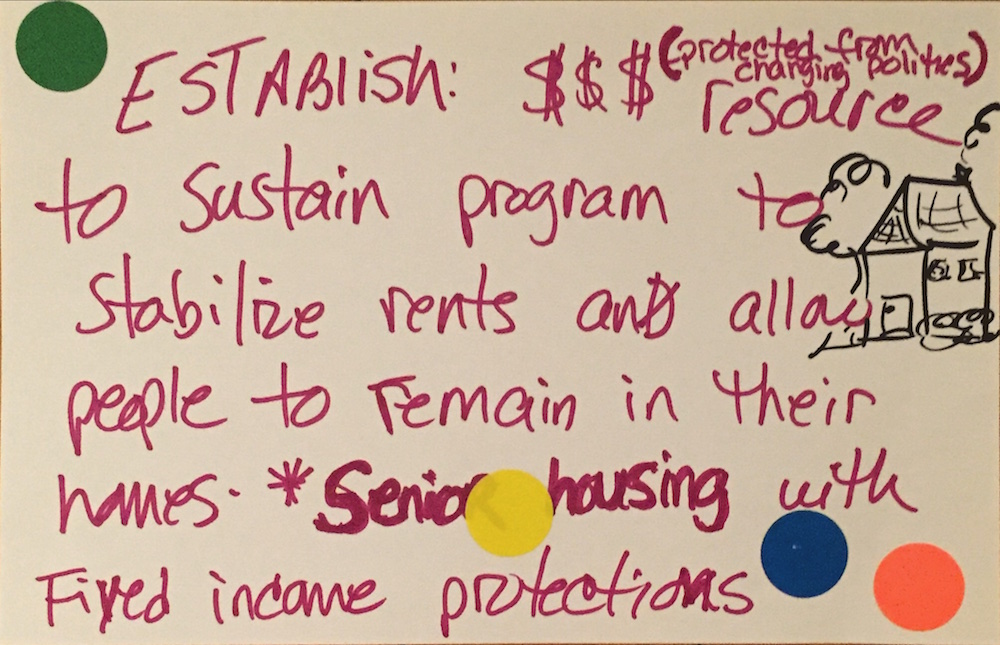 ESTABLISH: $$$ (protected from
changing polities)
resource
to sustain program to
stabilize rents and allow
people to remain in their
homes. *Senior housing with
Fixed income protections